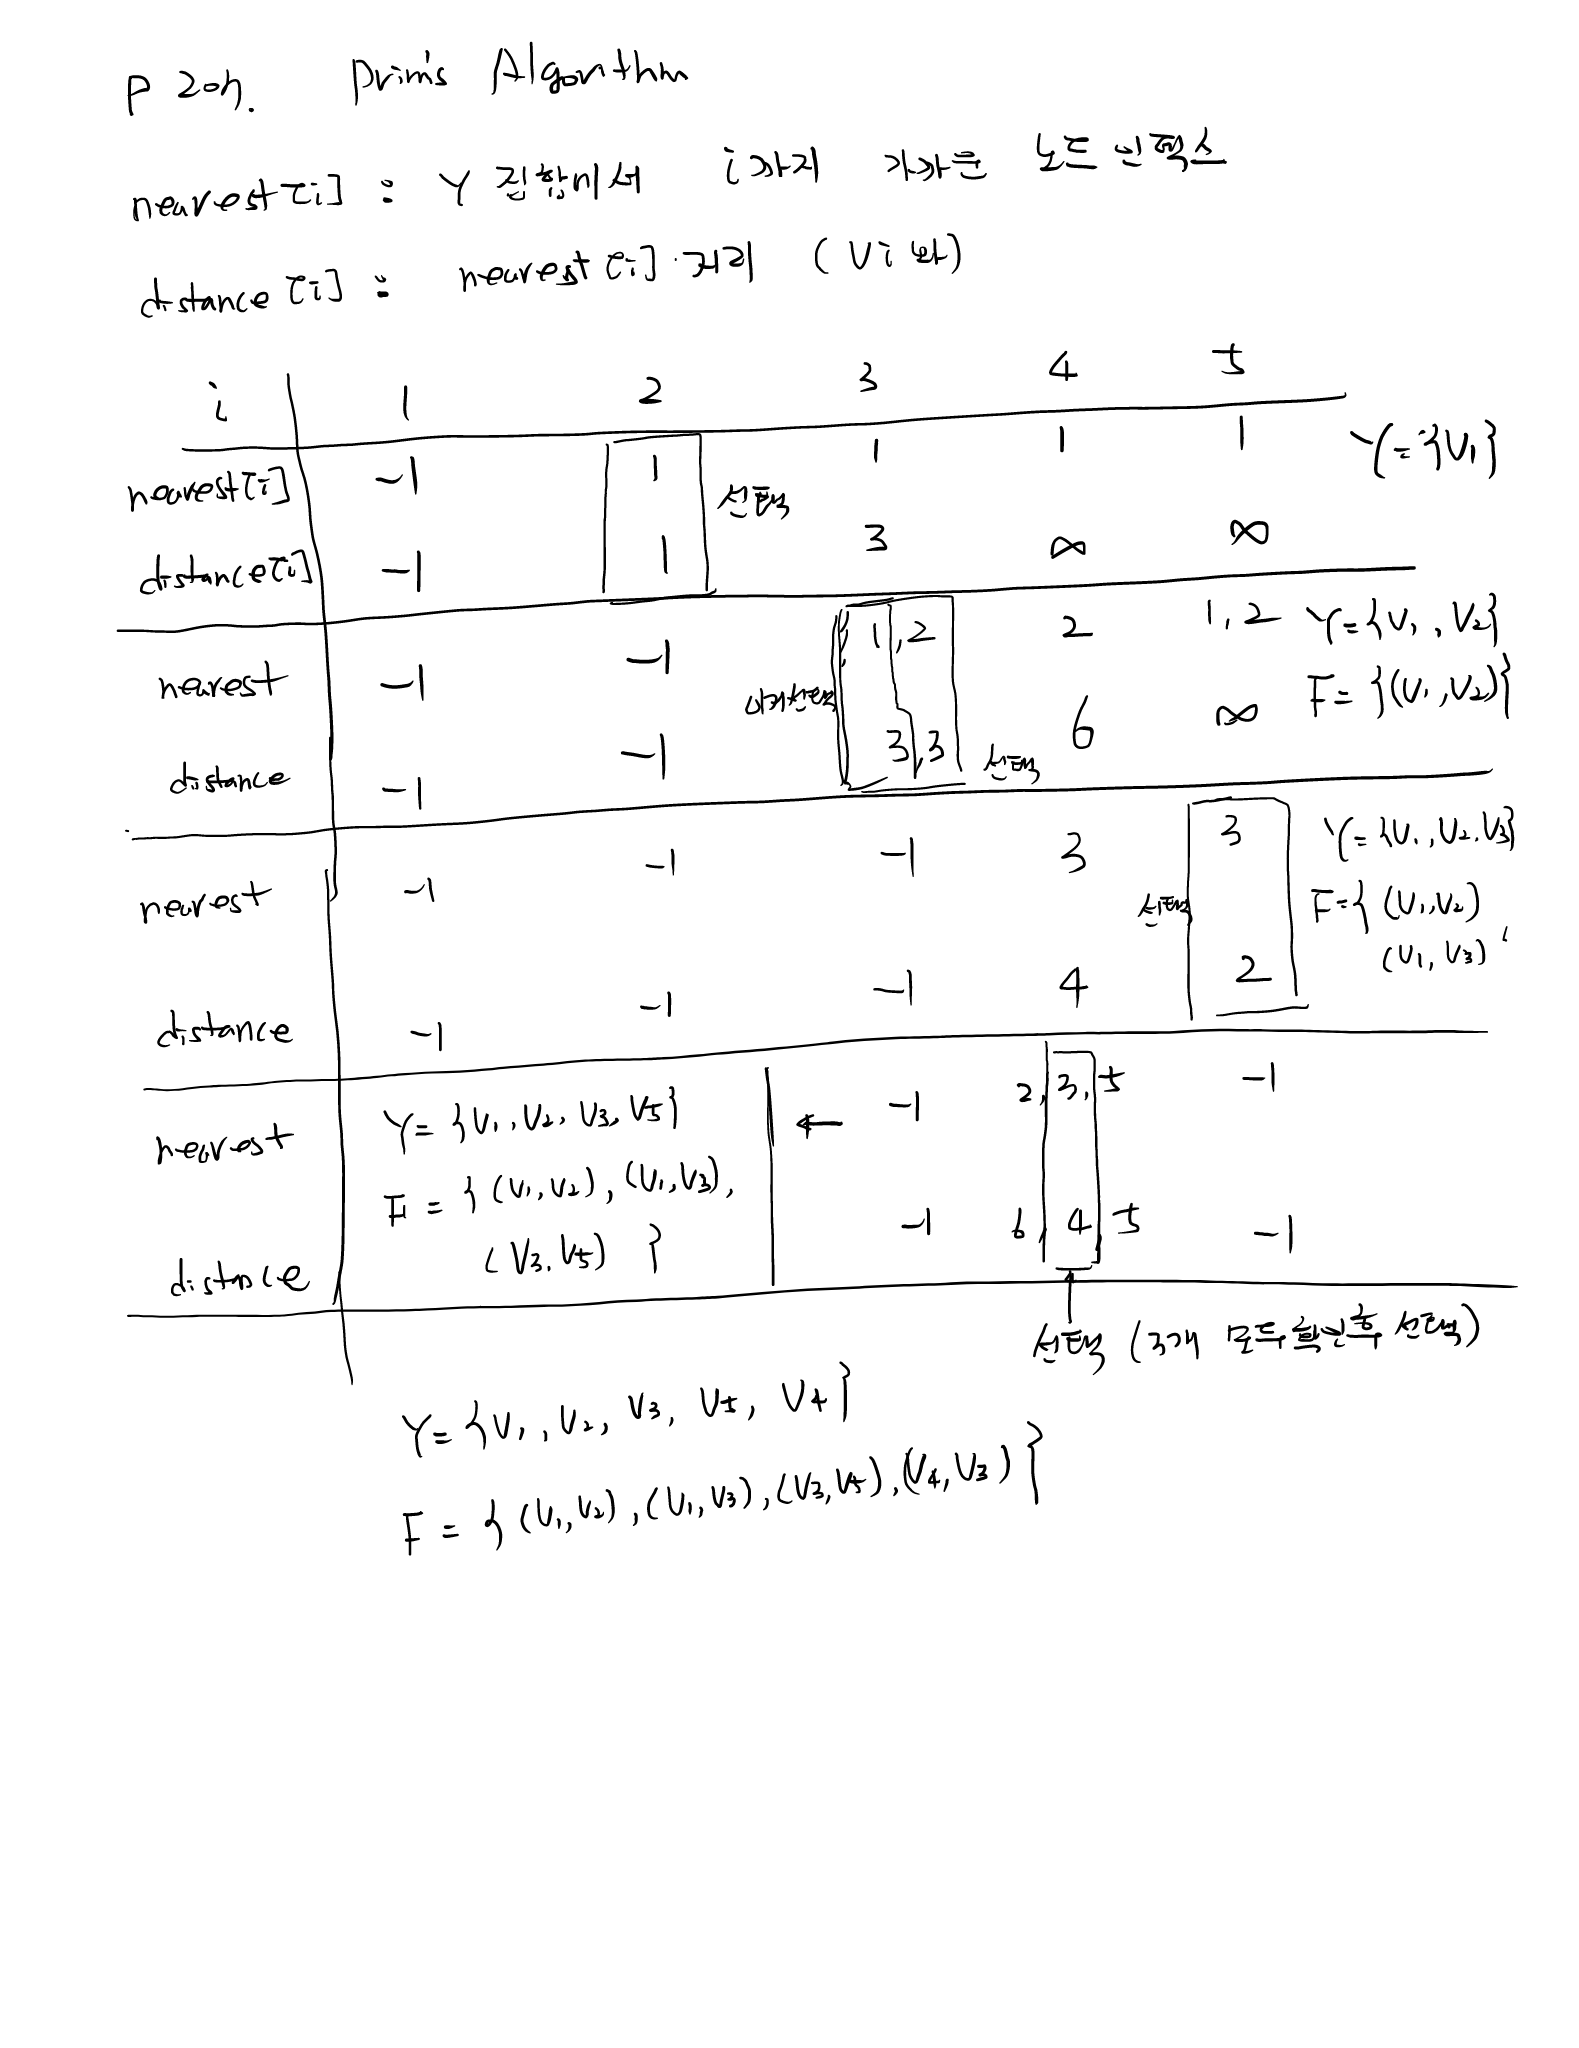 Prim's Algorithm
nearest[i] : Y 집합에서 i까지 가까운 노드 인덱스
distance[i] : nearest[i] 거리 (Vi 와)
i 1 2 3 4 5
nearest[i] -1 1 선택 1 1 1 Y={V1}
distance[i] -1 1 3 ∞ ∞
nearest -1 -1 1,2 2 1,2 Y={V1, V2}
F={(V1,V2)}
distance -1 -1 3,3 선택 6 ∞
nearest -1 -1 -1 3 3 Y={V1,V2,V3}
선택 F={(V1,V2)
(V1,V3)
distance -1 -1 -1 4 2
nearest Y={V1,V2,V3,V5} ← -1 2,3,5 -1
F={(V1,V2),(V1,V3),
(V3,V5)}
distance -1 6,4,5 -1
선택 (3개 모두 확인후 선택)
Y={V1,V2,V3,V5,V4}
F={(V1,V2),(V1,V3),(V3,V5),(V4,V3)}